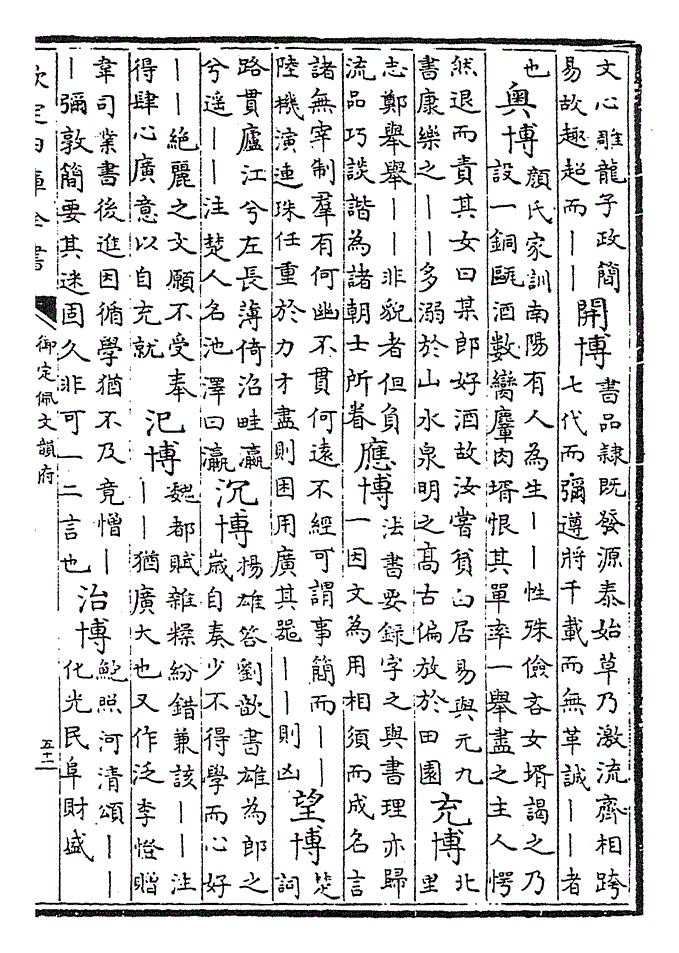 文心雕龍子政簡
易故趣超而——
開博
書品隸既發源泰始草乃激流齊相跨
七代而彌遵將千載而無革誠——者
也
奧博
顔氏家訓南陽有人為生——性殊儉吝女壻謁之乃
設一銅甌酒數臠麞肉壻恨其單率一舉盡之主人愕
然退而責其女曰某郎好酒故汝嘗貧白居易與元九
書康樂之——多溺於山水泉明之髙古偏放於田園
充博
北
里
志鄭舉舉——非貌者但負
流品巧談諧為諸朝士所眷
應博
法書要録字之與書理亦歸
一因文為用相須而成名言
諸無宰制羣有何幽不貫何遠不經可謂事簡而——
陸機演連珠任重於力才盡則困用廣其噐——則凶
望博
楚
詞
路貫廬江兮左長薄倚沼畦瀛
兮遥——注楚人名池澤曰瀛
沉博
揚雄答劉歆書雄為郎之
歲自奏少不得學而心好
——絶麗之文願不受奉
得肆心廣意以自充就
氾博
魏都賦雜糅紛錯兼該——注
——猶廣大也又作泛李憕贈
韋司業書後進因循學猶不及竟憎—
—彌敦簡要其迷固久非可一二言也
治博
鮑照河清頌——
化光民阜財盛
欽定四庫全書
御定佩文韻府